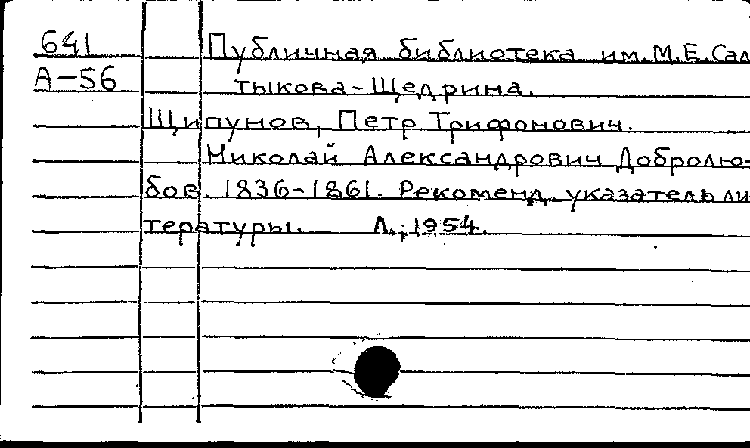 641 Публичная библиотека им. М.Е. Сал
А-56 тыкова-Щедрина.
Щипунов, Петр Трифонович.
Николай Александрович Добролю-
бов. 1836-1861. Рекоменд. указатель ли
тературы. Л., 1954.